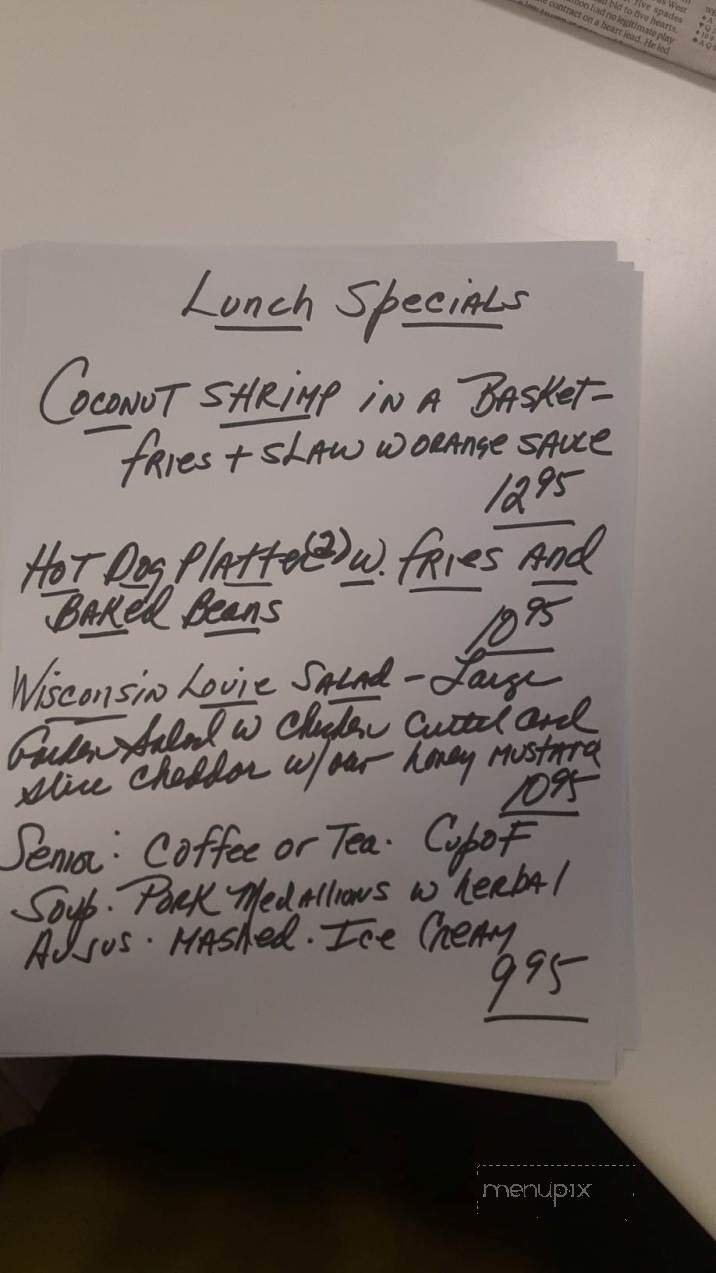 five spades
bid to five hearts.
had no legitimate play
contract on a heart lead. He led
Lunch Specials
Coconut Shrimp in a Basket-
fries + slaw w orange sauce
12 95
Hot Dog Platter (2) w. fries and
Baked Beans
10 95
Wisconsin Louie Salad - Large
Garden Salad w Chicken Cutlet and
slice cheddar w/our honey mustard
10 95
Senior: Coffee or Tea. Cup of
Soup. Pork Medallions w herbal
Au Jus. Mashed. Ice Cream
9 95
menupix